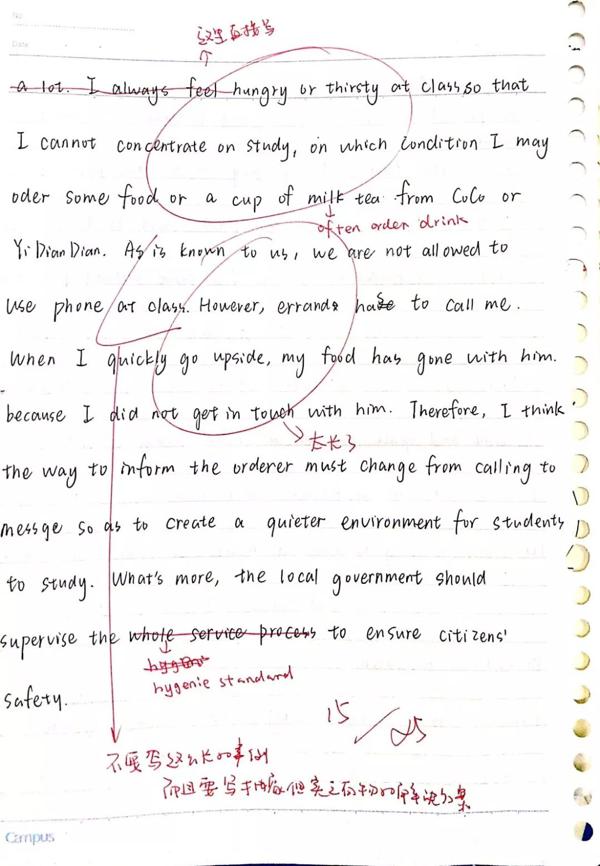 No
Date
这里直接写
a lot. I always feel hungry or thirsty at class so that
I cannot concentrate on study, on which condition I may
oder some food or a cup of milk tea from CoCo or
often order drink
Yi Dian Dian. As is known to us, we are not allowed to
use phone at class. However, errands have to call me.
When I quickly go upside, my food has gone with him.
because I did not get in touch with him. Therefore, I think
太长了
the way to inform the orderer must change from calling to
messge so as to create a quieter environment for students
to study. What's more, the local government should
supervise the whole service process to ensure citizens'
hygenie standard
safety.
15/25
不要写这么长的事例
而且要写
Campus